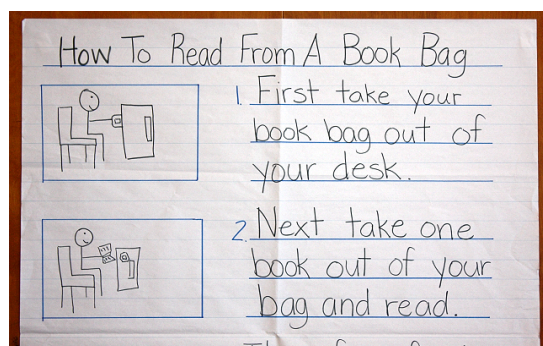 How To Read From A Book Bag
1. First take your
book bag out of
your desk.
2. Next take one
book out of your
bag and read.